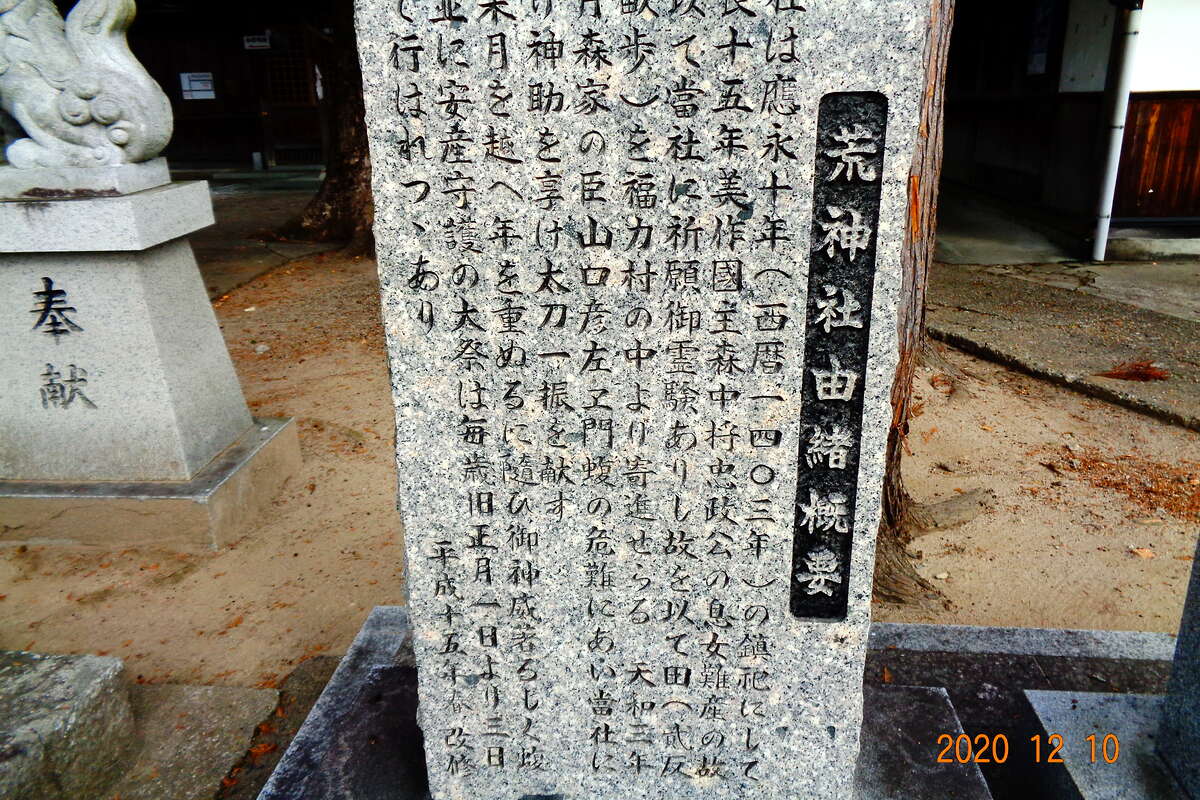 荒神社由緒概要
社は應永十年（西暦一四〇三年）の鎮祀にして
長十五年美作國主森中将忠政公の息女難産の故
以て當社に祈願御霊験ありし故を以て田（貳反
畝歩）を福力村の中より寄進せらる 天和三年
月森家の臣山口彦左ヱ門蝮の危難にあい當社に
り神助を享け太刀一振を献す
末月を越へ年を重ぬるに随ひ御神威著ろしく蝮
並に安産守護の大祭は毎歳旧正月一日より三日
て行はれつゝあり
平成十五年春 改修
奉献
2020 12 10